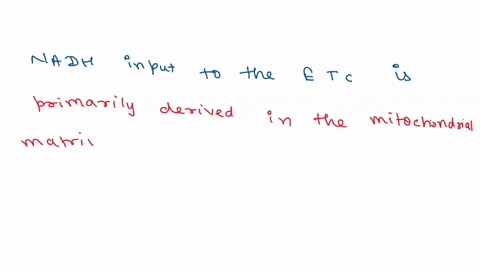 NADH input to the ETC is
primarily derived in the mitochondrial
matri